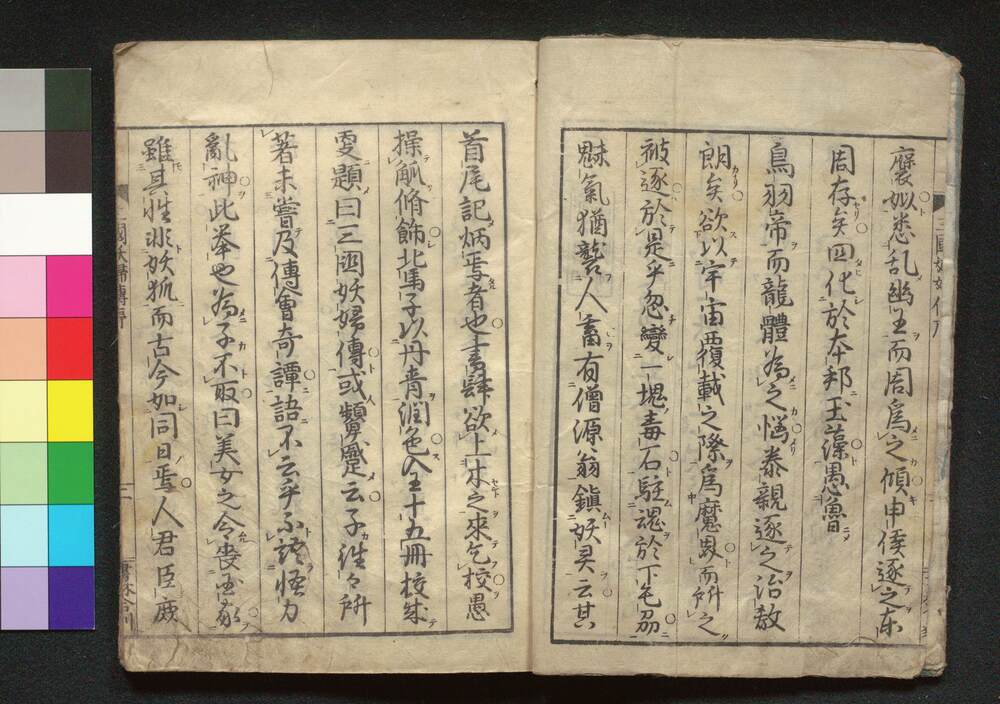 褒姒悉乱幽王而周為之傾申侯逐之東
周存矣四化於本邦玉藻愚魯
鳥羽帝而龍體為之悩泰親逐之治教
朗矣欲以宇宙覆載之際為魔界而所之
被逐於是乎忽變一塊毒石駐魂於下毛
魅氣猶襲人畜有僧源翁鎮妖灵云其
首尾記炳焉者也書肆欲上木之來乞校愚
操觚脩飾北馬子以丹青潤色全十五冊校成
更題曰三國妖婦傳或顰蹙云子往々所
著未嘗及傳會奇譚語不云乎不語怪力
亂神此举也為子不取曰美女之令喪国家
雖其性非妖狐而古今如同日焉人君臣庶
三國妖婦傳序